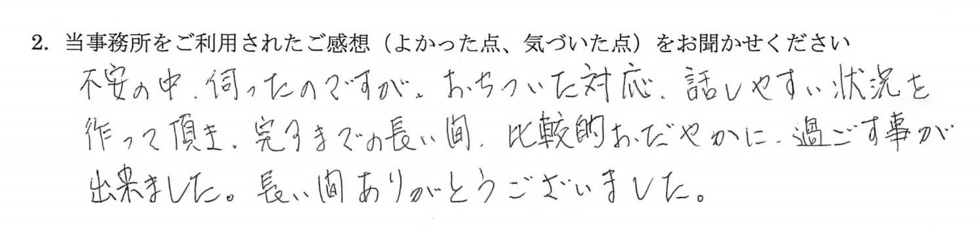 2. 当事務所をご利用されたご感想（よかった点、気づいた点）をお聞かせください
不安の中、伺ったのですが、おちついた対応、話しやすい状況を
作って頂き、完了までの長い間、比較的おだやかに、過ごす事が
出来ました。長い間ありがとうございました。